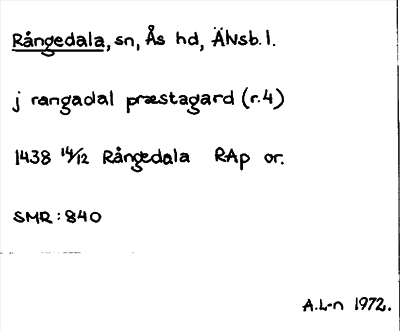 Rångedala, sn, Ås hd, ÄNsb. l.
j rangadal præstagard (r.4)
1438 14/12 Rångedala RAp or.
SMR: 840
A.L-n 1972.